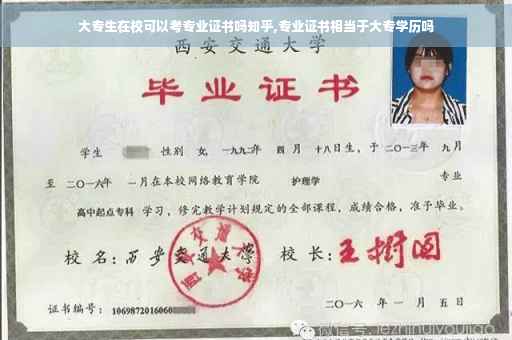 大专生在校可以考专业证书吗知乎,专业证书相当于大专学历吗
西安交通大学
毕业证书
学生 性别 女, 一九九二年 四月 十八日生, 于二〇一三年 九月
至 二〇一六年 一月在本校网络教育学院 护理学 专业
高中起点专科 学习, 修完教学计划规定的全部课程, 成绩合格, 准予毕业。
校名: 西安交通大学 校长: 王树国
西安交通大学
证书编号: 1069872016060
二〇一六年 一月 五日
微信号: iezhihuiyoujiao